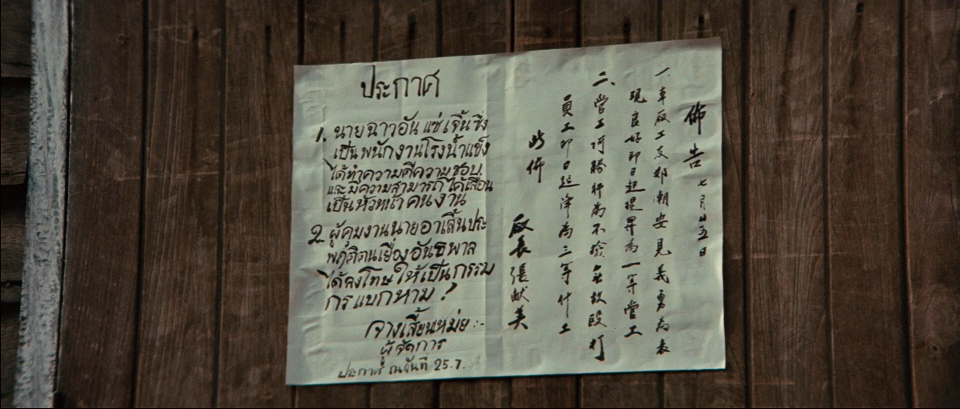 ประกาศ
1. นายฉาวอัน แซ่เจิ้นซึ่ง
เป็นพนักงานโรงน้ำแข็ง
ได้ทำความดีความชอบ
และมีความสามารถได้เลื่อน
เป็นหัวหน้าคนงาน
2. ผู้คุมงานนายอาเสิ้นประ
พฤติตนเยี่ยงอันธิพาล
ได้ลงโทษให้เป็นกรรม
กรแบกหาม!
เจางเสี้ยนหม่ย :-
ผู้จัดการ
ประกาศ ณ วันที่ 25.7.
佈告 七月廿五日
一、本廠工友鄭潮安見義勇為表
現良好即日起提昇為一等管工
二、管工何勝行為不檢無故毆打
員工即日起降為三等什工
此佈
廠長張献美